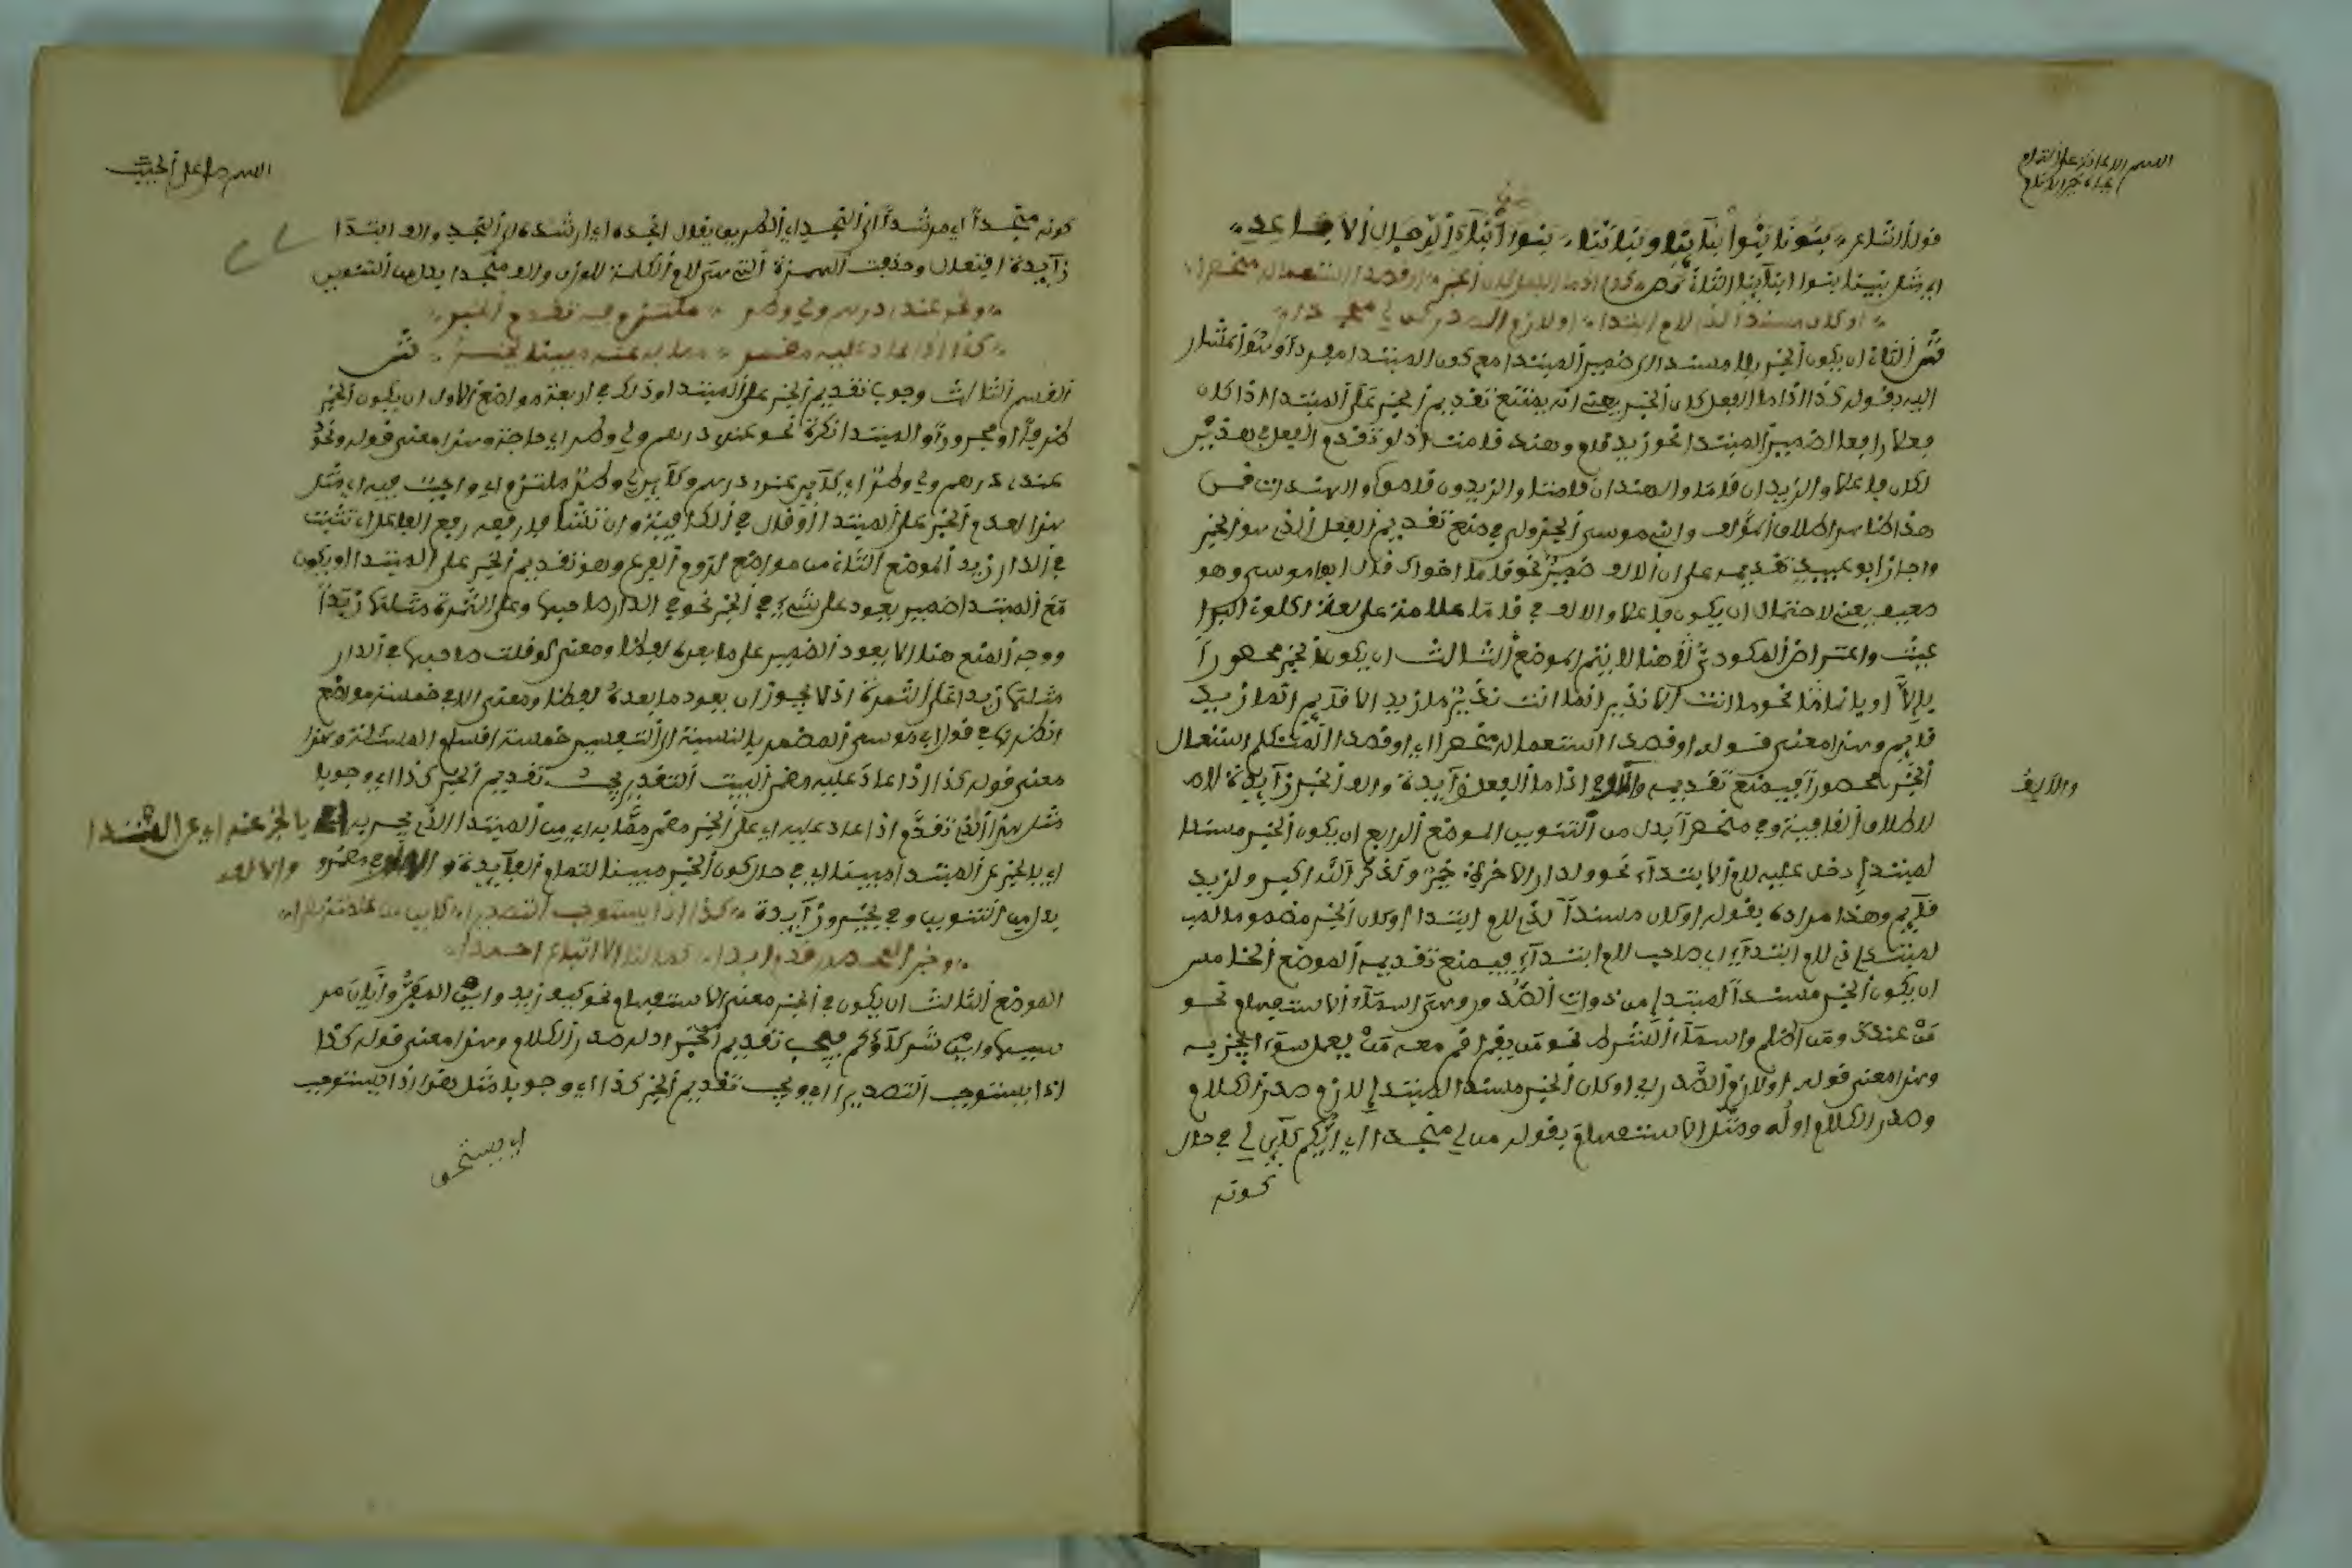 قول الشاعر بنونا بنوا أبنائنا وبناتنا بنوا أبناء الرجال الأباعد
اي مثل بنينا بنوا ابنآئنا الثلاثة ص كذا اذا ما الفعل كان الخبرا او قصد استعماله منحصرا
او كان مسندا لذي لام ابتدا او لازم الصدر كمن لي منجدا
ش الثاني ان يكون الخبر فعلا مسندا الى ضمير المبتدا مع كون المبتدا مفردا وأشار
اليه بقوله كذا اذا ما الفعل كان الخبر يعني انه يمتنع تقديم الخبر على المبتدا اذا كان
فعلا رافعا لضمير المبتدا نحو زيد قام وهند قامت اذ لو تقدم الفعل في هذين
لكان فاعلا والزيدان قاما والهندان قامتا والزيدون قاموا والهندات قمن
هذا ظاهر اطلاق المؤلف وابي موسى الجزولي في منع تقديم الفعل الذي هو الخبر
واجاز ابو عبيد تقديمه على ان الالف ضمير نحو قاما اخواك قال ابو موسى وهو
ضعيف يعني لاحتمال ان يكون فاعلا والالف في قاما علامة على لغة اكلوني البراغيث
واعتراض المكودي هنا لا يتم الموضع الثالث ان يكون الخبر محصورا
بإلا او بإنما نحو ما انت الا نذير انما انت نذير ما زيد الا قائم انما زيد
قائم وهذا معنى قوله او قصد استعماله منحصرا اي او قصد المتكلم استعمال
الخبر محصورا فيمنع تقديمه وما في اذا ما الفعل زآيدة والف الخبرا زآيدة لا
والالف
لاطلاق القافية وفي منحصرا بدل من التنوين الموضع الرابع ان يكون الخبر مسندا
لمبتدإ دخل عليه لام الابتدآء نحو ولدار الاخرة خير ولذكر الله اكبر ولزيد
قآئم وهذا مراده بقوله او كان مسندا لذي لام ابتدا او كان الخبر
لمبتدإ ذي لام ابتدآء اي صاحب لام ابتدآء فيمنع تقديمه الموضع الخامس
ان يكون الخبر مسندا لمبتدإ من ذوات الصدور وهي اسمآء الاستفهام نحو
من عندك ومن اظلم واسمآء الشرط نحو من يقم اقم معه من يعمل سوءا يجز به
وهذا معنى قوله او لازم الصدر اي او كان الخبر مسندا لمبتدإ لازم صدر الكلام
وصدر الكلام اوله ومثل الاستفهام بقوله من لي منجدا اي ايكم كآئن لي في حال
كونه
كونه منجدا اي مرشدا الى النجد اي الطريق يقال انجده اي ارشده الى النجد والف ابتدا
زآيدة افتعال وحذفت الهمزة التي هي لام الكلمة للوزن والف منجدا بدل من التنوين
ونحو عندي درهم ولي وطر ملتزم فيه تقدم الخبر
كذا اذا عاد عليه مضمر مما به عنه مبينا يخبر ش
القسم الثالث وجوب تقديم الخبر على المبتدا وذلك في اربعة مواضع الاول ان يكون الخبر
ظرفا او مجرورا والمبتدا نكرة نحو عندي درهم ولي وطر اي حاجة وهذا معنى قوله ونحو
عندي درهم ولي وطر اي كآئن عندي درهم وكآئن لي وطر ملتزم اي واجب فيه اي مثل
هذا تقدم الخبر على المبتدا
في الدار زيد الموضع الثاني من مواضع لزوم الفرع وهو تقديم الخبر على المبتدا ان يكون
مع المبتدا ضمير يعود على شيء في الخبر نحو في الدار صاحبها وعلى التمرة مثلها زبدا
ووجه المنع هنا لئلا يعود الضمير على ما بعده لفظا ومعنى لو قلت صاحبها في الدار
مثلها زبدا على التمرة اذ لا يجوز ان يعود ما بعده لفظا ومعنى الا في خمسة مواضع
انظرها في قول ابي موسى المضمر بالنسبة الى التفسير خمسة اقسام المسئلة وهذا
معنى قوله كذا اذا عاد عليه مضمر البيت التقدير يجب تقديم الخبر كذا اي وجوبا
مثل هذا الذي تقدم اذا عاد عليه اي على الخبر مضمر مما به اي من المبتدا الذي يخبر به اي بالخبر عنه اي عن المبتدا
اي بالخبر عن المبتدا مبينا اي في حال كون الخبر مبينا لتمام الفآيدة و في مضمر والالف
بدل من التنوين وفي يخبر زآيدة كذا اذا يستوجب التصديرا كاين من علمته نصيرا
وخبر المحصور قدم ابدا كما لنا الا اتباع احمدا
الموضع الثالث ان يكون في الخبر معنى الاستفهام نحو كيف زيد واين المفر وأيان مر
سيها واين شركآؤكم فيجب تقديم الخبر اذ له صدر الكلام وهذا معنى قوله كذا
اذا يستوجب التصديرا اي ويجب تقديم الخبر كذا اي وجوبا مثل هذا اذا يستوجب
اي يستحق